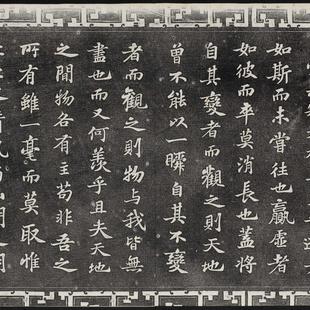 如斯而未嘗往也贏虛者
如彼而卒莫消長也蓋將
自其變者而觀之則天地
曾不能以一瞬自其不變
者而觀之則物与我皆無
盡也而又何羨乎且夫天地
之間物各有主苟非吾之
所有雖一毫而莫取惟